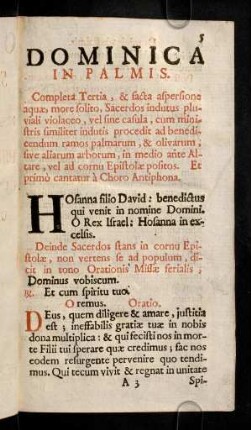 5
DOMINICA
IN PALMIS.
Completa Tertia, & facta aspersione
aquæ, more solito, Sacerdos indutus plu-
viali violaceo, vel sine casula, cum mini-
stris similiter indutis procedit ad benedi-
cendum ramos palmarum, & olivarum,
sive aliarum arborum, in medio ante Al-
tare, vel ad cornu Epistolæ positos. Et
primò cantatur à Choro Antiphona.
HOsanna filio David: benedictus
qui venit in nomine Domini.
O Rex Israel: Hosanna in ex-
celsis.
Deinde Sacerdos stans in cornu Epi-
stolæ, non vertens se ad populum, di-
cit in tono Orationis Missæ ferialis;
Dominus vobiscum.
℞. Et cum spiritu tuo.
Oremus. Oratio.
DEus, quem diligere & amare, justitia
est; ineffabilis gratiæ tuæ in nobis
dona multiplica: & qui fecisti nos in mor-
te Filii tui sperare quæ credimus; fac nos
eodem resurgente pervenire quo tendi-
mus. Qui tecum vivit & regnat in unitate
A 3 Spi-